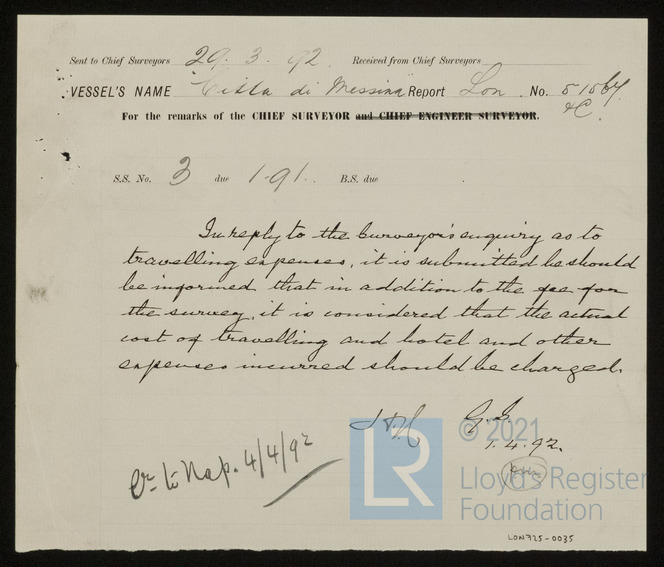 Sent to Chief Surveyors 29.3.92 Received from Chief Surveyors
VESSEL'S NAME "Citta di Messina" Report Lon. No. 51564
&C.
For the remarks of the CHIEF SURVEYOR and CHIEF ENGINEER SURVEYOR.
S.S. No. 3 due 1.91. B.S. due
In reply to the Surveyor's enquiry as to
travelling expenses, it is submitted he should
be informed that in addition to the fee for
the survey, it is considered that the actual
cost of travelling and hotel and other
expenses incurred should be charged.
1.4.92.
to Nap. 4/4/92
© 2021
LR
Lloyd's Register
Foundation
LON725-0035